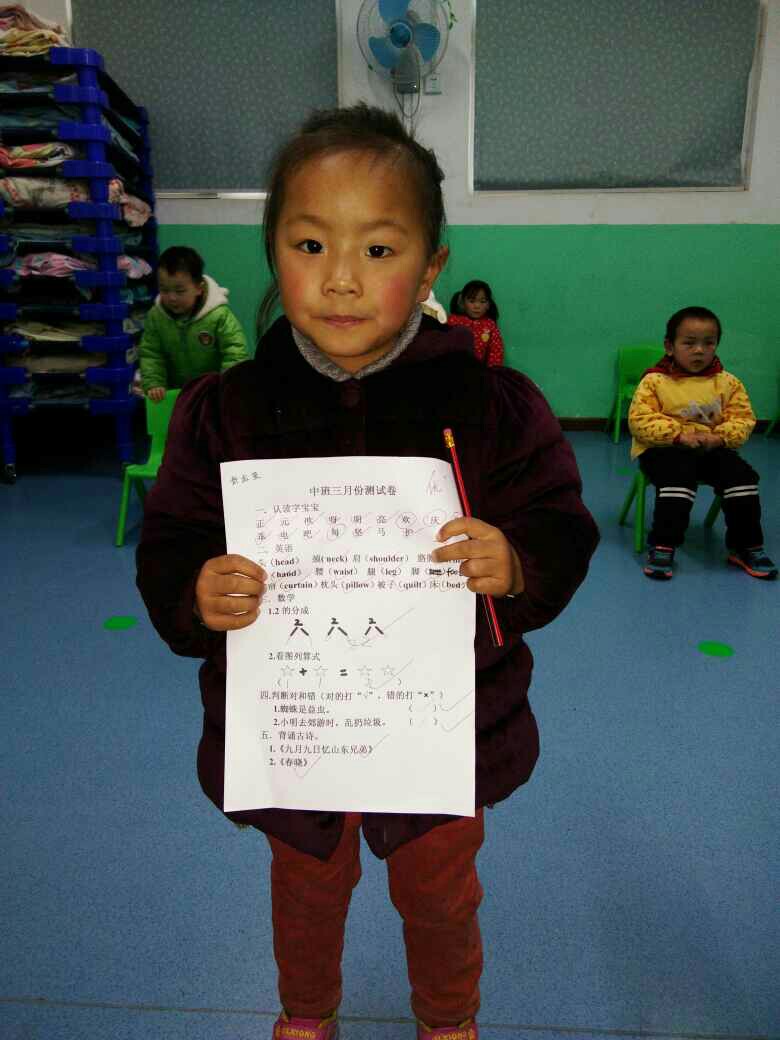 中班三月份测试卷
优
一、认读字宝宝
正 元 明 亮 欢 庆
电 吧 每 坚 马 护
二、英语
(head) 颈(neck) 肩(shoulder) 胳膊
(hand) 腰(waist) 腿(leg) 脚
(curtain) 枕头(pillow) 被子(quilt) 床(bed)
三、数学
1.2的分成
2 2 2
2.看图列算式
☆ + ☆ = ☆ ☆
( 1 1 2 )
四.判断对和错(对的打“√”,错的打“×”)
1.蜘蛛是益虫。 ( )
2.小明去郊游时,乱扔垃圾。 ( )
五、背诵古诗。
1.《九月九日忆山东兄弟》
2.《春晓》